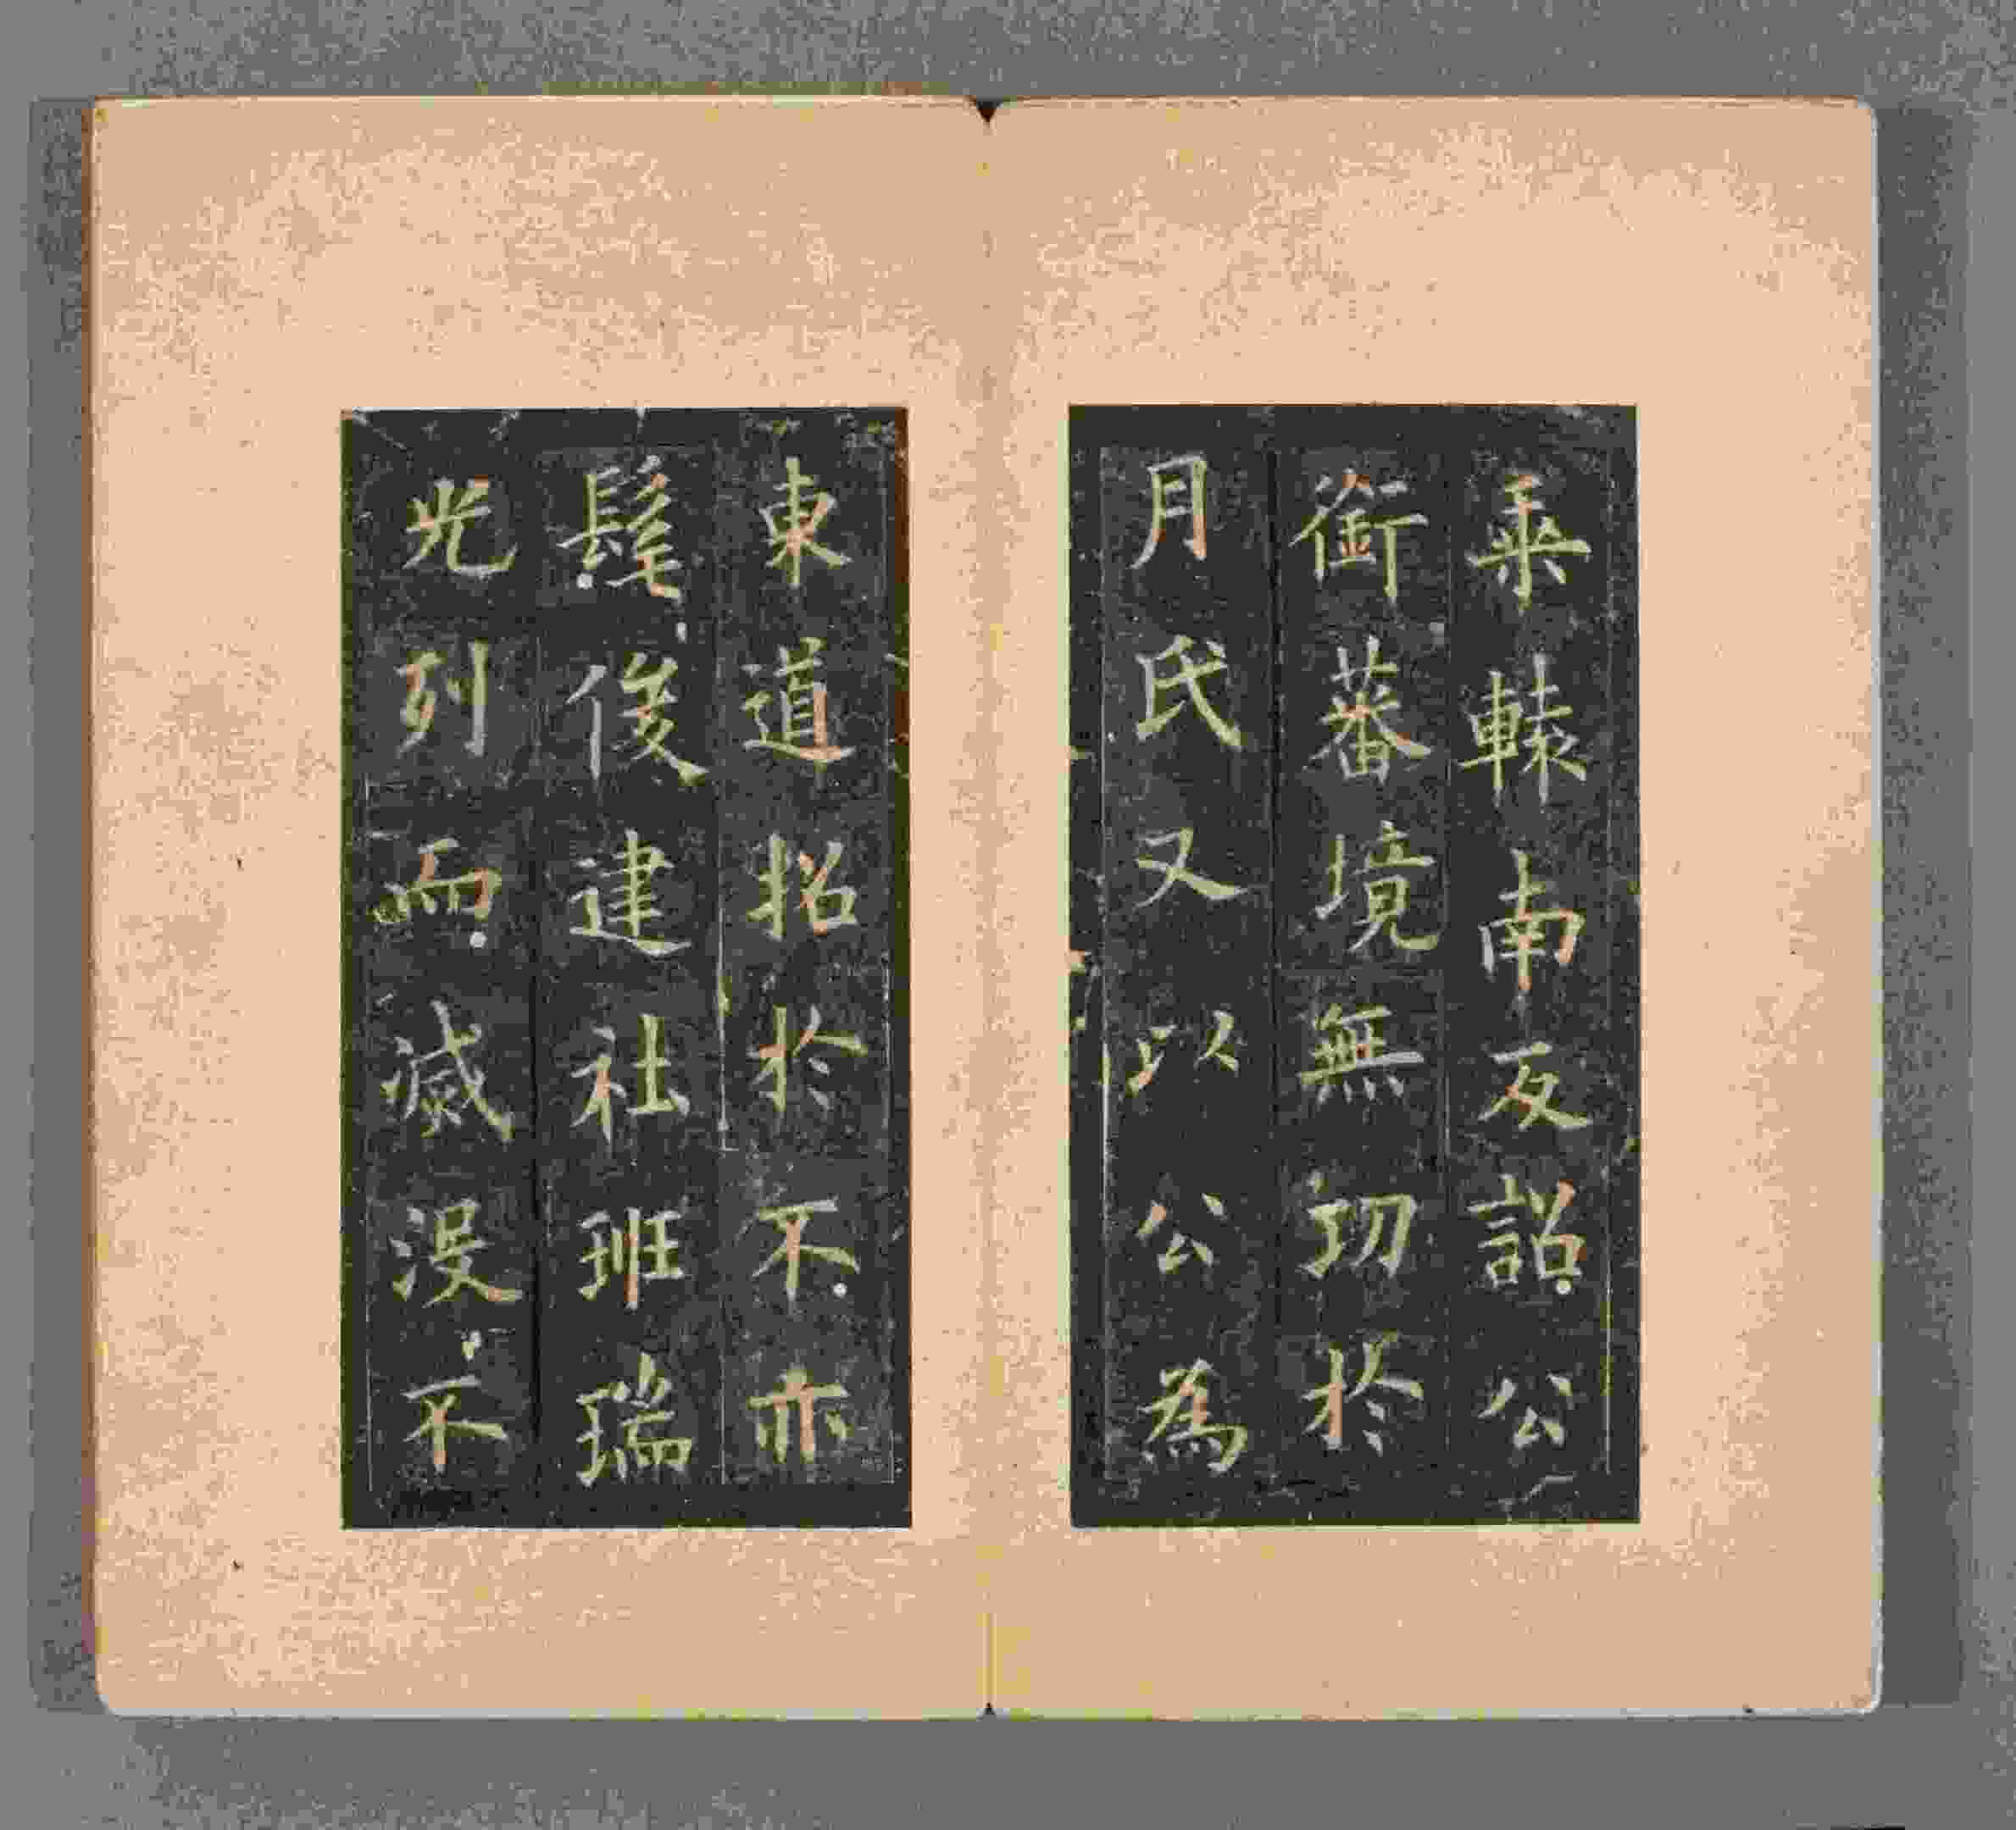 乗轅南反詔公
銜蕃境無切於
月氏又以公為
東道招於不亦
髦俊建社班瑞
光列而滅没不